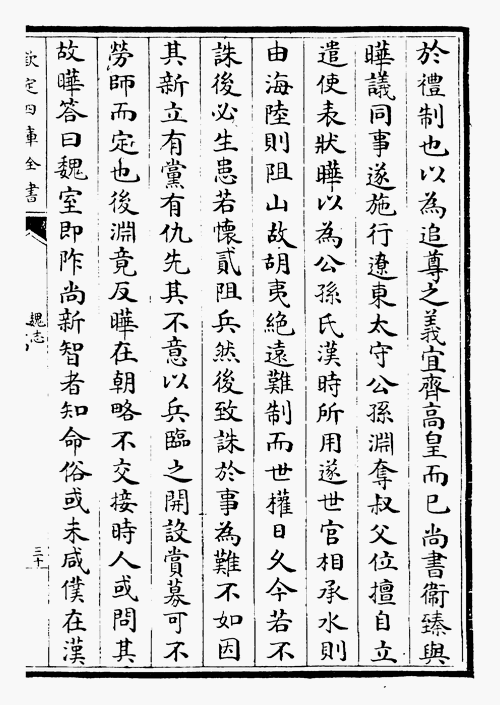 於禮制也以為追尊之義宜齊高皇而已尚書衞臻與
曄議同事遂施行遼東太守公孫淵奪叔父位擅自立
遣使表狀曄以為公孫氏漢時所用遂世官相承水則
由海陸則阻山故胡夷絶遠難制而世權日久今若不
誅後必生患若懷貳阻兵然後致誅於事為難不如因
其新立有黨有仇先其不意以兵臨之開設賞募可不
勞師而定也後淵竟反曄在朝略不交接時人或問其
故曄答曰魏室即阼尚新智者知命俗或未咸僕在漢
欽定四庫全書
魏志
三十